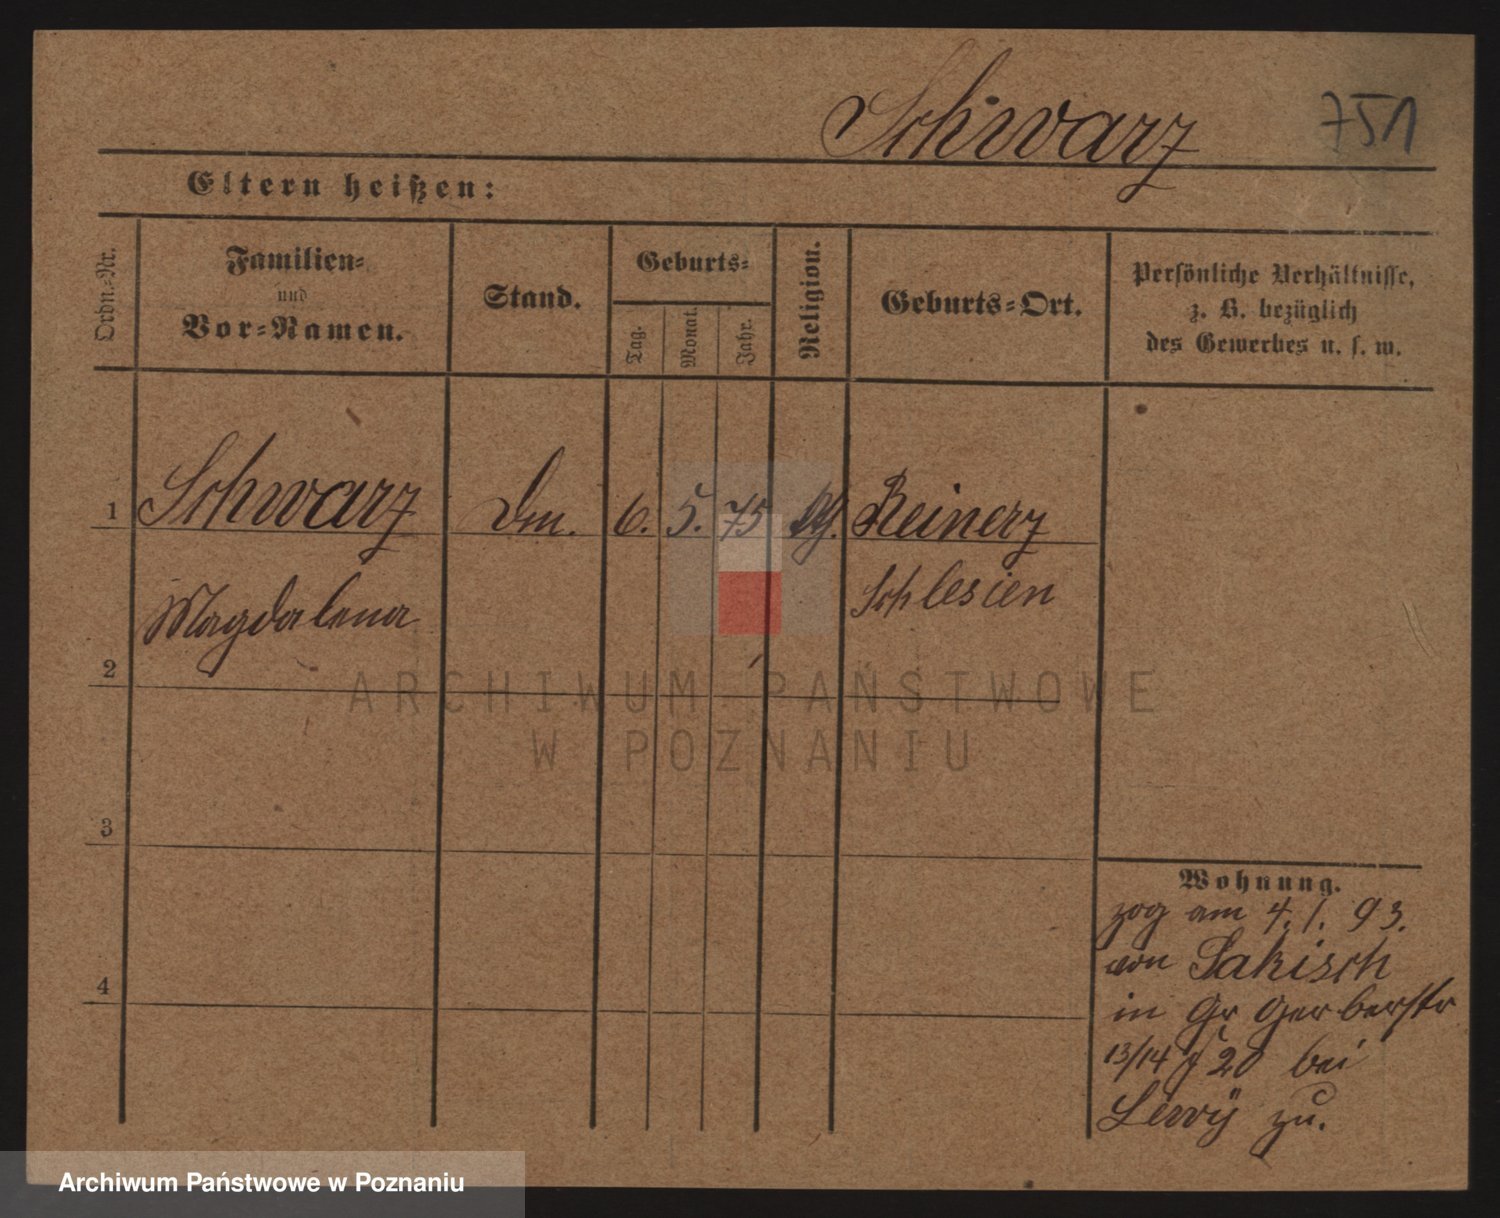 Schwarz 751
Eltern heißen:
Ordn.-Nr.
Familien-
und
Vor-Namen.
Stand.
Geburts-
Tag.
Monat.
Jahr.
Religion.
Geburts-Ort.
Persönliche Verhältnisse,
z. B. bezüglich
des Gewerbes u. s. w.
1 Schwarz 6. 5. 75 Reinerz
Magdalena Schlesien
2
ARCHIWUM PAŃSTWOWE
W POZNANIU
3
Wohnung.
zog am 4. 1. 93.
von Sakisch
4
in Gr Gerberstr
13/14 20 bei
Lewÿ zu.
Archiwum Państwowe w Poznaniu